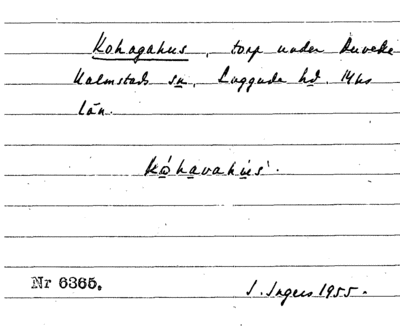 Kohagahus, torp under Duveke
Halmstads sn, Luggude hd. Mhs
län.
kåhavahus.
Nr 6365.
I. Ingers 1955.